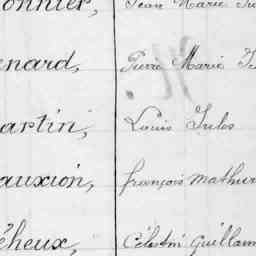 onnier, Jean Marie
enard, Pierre Marie
artin, Louis Jules
auxion, françois mathur
éheux, Célestin Guillaum